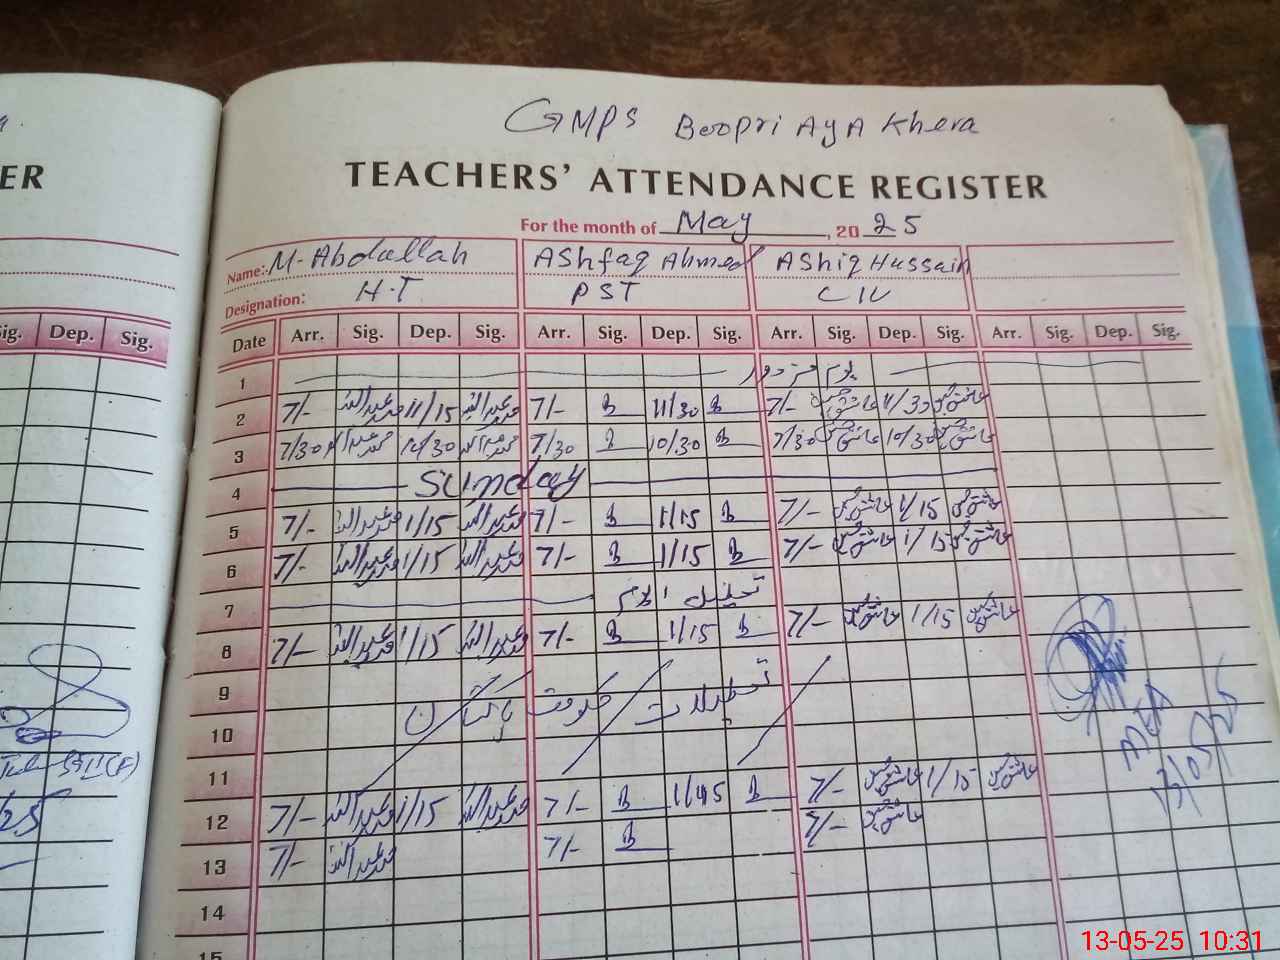 GMPS Boopri AyA Khera
ER
TEACHERS' ATTENDANCE REGISTER
For the month of May, 2025
Name:- M. Abdullah AShfaq Ahmed AShiq Hussain
Designation: H.T PST
Sig. Dep. Sig.
Date Arr. Sig. Dep. Sig. Arr. Sig. Dep. Sig. Arr. Sig. Dep. Sig. Arr. Sig. Dep. Sig.
1 یوم مزدور
2 7/- محمد عبداللہ 11/15 محمد عبداللہ 7/- 11/30 7/- عاشق حسین 11/30 عاشق حسین
3 7/30 محمد عبداللہ 10/30 محمد عبداللہ 7/30 10/30 7/30 عاشق حسین 10/30 عاشق حسین
4 Sunday
5 7/- محمد عبداللہ 1/15 محمد عبداللہ 7/- 1/15 7/- عاشق حسین 1/15 عاشق حسین
6 7/- محمد عبداللہ 1/15 محمد عبداللہ 7/- 1/15 7/- عاشق حسین 1/15 عاشق حسین
7 تعطیل
8 7/- محمد عبداللہ 1/15 محمد عبداللہ 7/- 1/15 7/- عاشق حسین 1/15 عاشق حسین
9
10 تعطیلات حکومت پاکستان
11
12 7/- محمد عبداللہ 1/15 محمد عبداللہ 7/- 1/45 7/- عاشق حسین 1/15 عاشق حسین
13 7/- محمد عبداللہ 7/- 7/- عاشق حسین
14
15
AEO
13/05/25
13-05-25 10:31